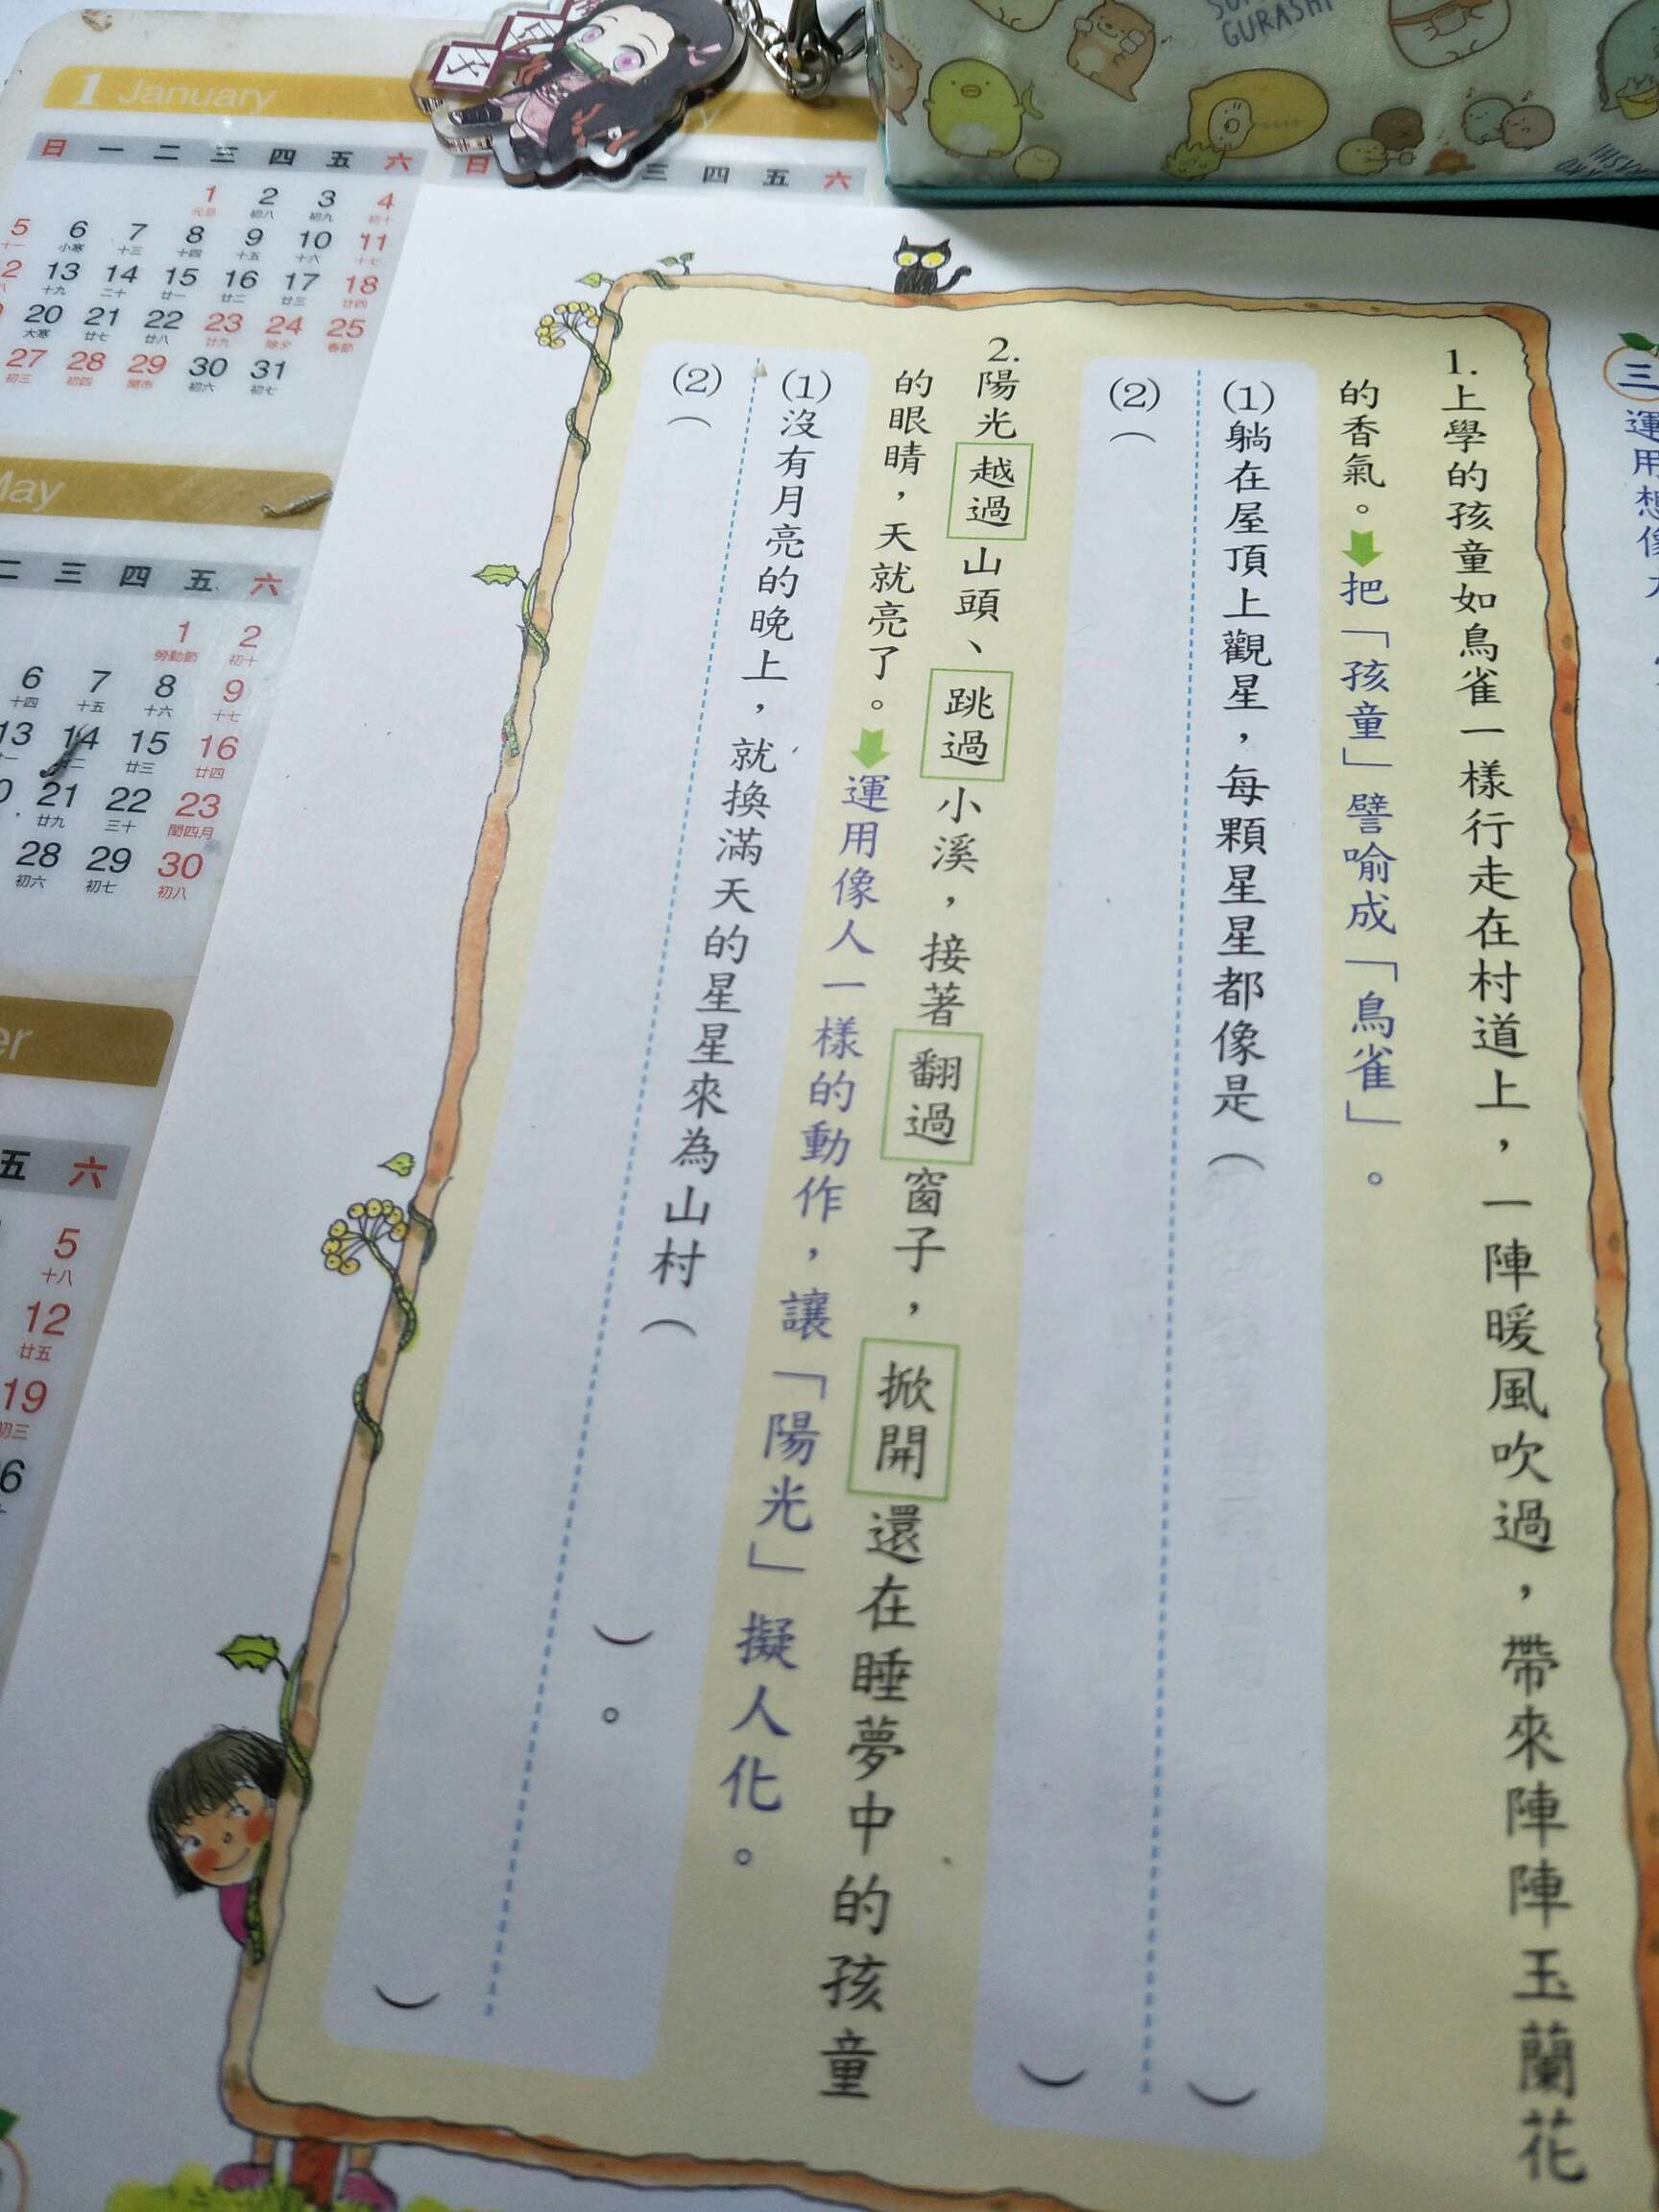 1 January
日 一 二 三 四 五 六
1 2 3 4
元旦 初八 初九 初十
5 6 7 8 9 10 11
十一 小寒 十三 十四 十五 十六 十七
13 14 15 16 17 18
十九 二十 廿一 廿二 廿三 廿四
20 21 22 23 24 25
大寒 廿七 廿八 廿九 除夕 春節
27 28 29 30 31
初三 初四 開市 初六 初七
日 三 四 五 六
May
二 三 四 五 六
1 2
勞動節 初十
6 7 8 9
十四 十五 十六 十七
13 14 15 16
廿三 廿四
21 22 23
廿九 三十 閏四月
28 29 30
初六 初七 初八
er
五 六
5
十八
12
廿五
19
初三
GURASHI
三
運用想像
1.上學的孩童如鳥雀一樣行走在村道上，一陣暖風吹過，帶來陣陣玉蘭花
的香氣。把「孩童」譬喻成「鳥雀」。
(1)躺在屋頂上觀星，每顆星星都像是（ ）
(2)（ ）
2.陽光越過山頭、跳過小溪，接著翻過窗子，掀開還在睡夢中的孩童
的眼睛，天就亮了。運用像人一樣的動作，讓「陽光」擬人化。
(1)沒有月亮的晚上，就換滿天的星星來為山村（ ）。
(2)（ ）